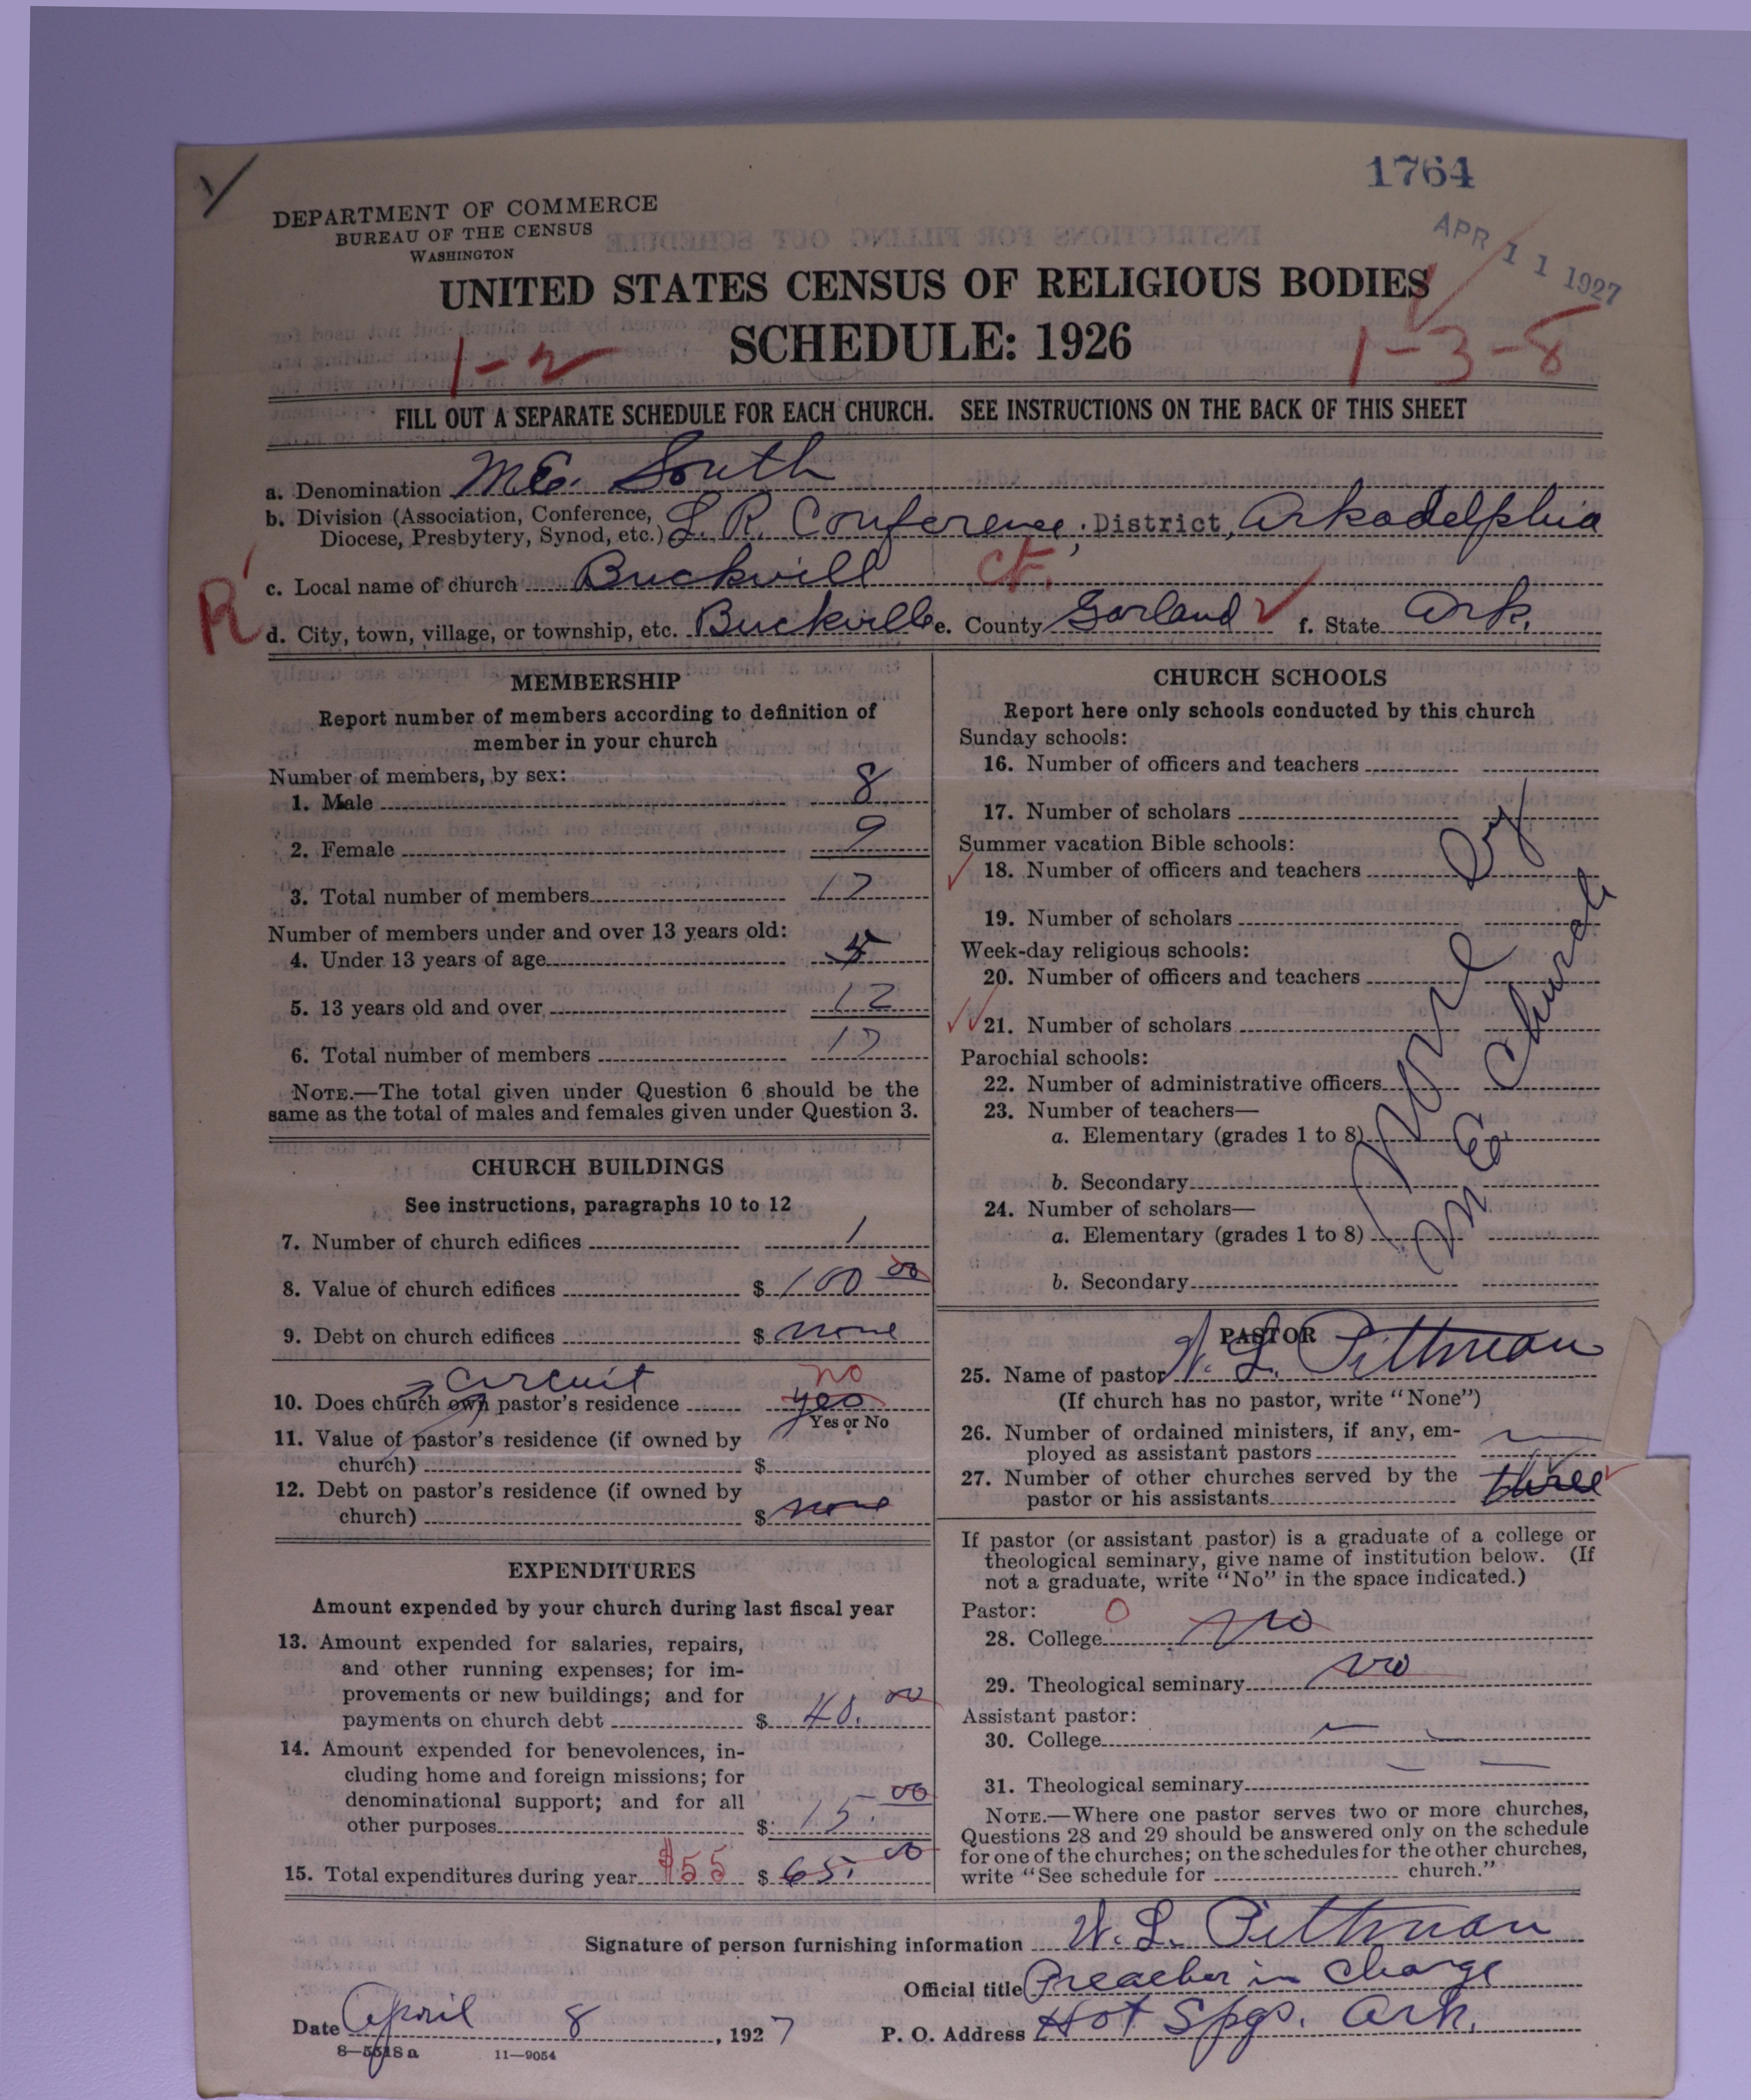 1764
APR 11 1927
DEPARTMENT OF COMMERCE
BUREAU OF THE CENSUS
WASHINGTON
UNITED STATES CENSUS OF RELIGIOUS BODIES
SCHEDULE: 1926
1-2
1-3-8
FILL OUT A SEPARATE SCHEDULE FOR EACH CHURCH. SEE INSTRUCTIONS ON THE BACK OF THIS SHEET
a. Denomination M.E. South
b. Division (Association, Conference, Diocese, Presbytery, Synod, etc.) L. R. Conference, District, Arkadelphia
c. Local name of church Buckvill Ct.
R
d. City, town, village, or township, etc. Buckville e. County Garland f. State Ark.
MEMBERSHIP
Report number of members according to definition of
member in your church
Number of members, by sex:
1. Male 8
2. Female 9
3. Total number of members 17
Number of members under and over 13 years old:
4. Under 13 years of age 5
5. 13 years old and over 12
6. Total number of members 17
NOTE.—The total given under Question 6 should be the
same as the total of males and females given under Question 3.
CHURCH BUILDINGS
See instructions, paragraphs 10 to 12
7. Number of church edifices 1
8. Value of church edifices $ 100 00
9. Debt on church edifices $ none
circuit
10. Does church own pastor's residence yes no
Yes or No
11. Value of pastor's residence (if owned by
church) $
12. Debt on pastor's residence (if owned by
church) $ none
EXPENDITURES
Amount expended by your church during last fiscal year
13. Amount expended for salaries, repairs,
and other running expenses; for im-
provements or new buildings; and for
payments on church debt $ 40. 00
14. Amount expended for benevolences, in-
cluding home and foreign missions; for
denominational support; and for all
other purposes $ 15. 00
15. Total expenditures during year $55 $ 65. 00
CHURCH SCHOOLS
Report here only schools conducted by this church
Sunday schools:
16. Number of officers and teachers
17. Number of scholars
Summer vacation Bible schools:
18. Number of officers and teachers
19. Number of scholars
Week-day religious schools:
20. Number of officers and teachers
21. Number of scholars
Parochial schools:
22. Number of administrative officers
23. Number of teachers—
a. Elementary (grades 1 to 8)
b. Secondary
24. Number of scholars—
a. Elementary (grades 1 to 8)
b. Secondary
None By
M E Church
PASTOR
25. Name of pastor W. L. Pittman
(If church has no pastor, write "None")
26. Number of ordained ministers, if any, em-
ployed as assistant pastors
27. Number of other churches served by the
pastor or his assistants three
If pastor (or assistant pastor) is a graduate of a college or
theological seminary, give name of institution below. (If
not a graduate, write "No" in the space indicated.)
Pastor: 0
28. College no
29. Theological seminary no
Assistant pastor:
30. College
31. Theological seminary
NOTE.—Where one pastor serves two or more churches,
Questions 28 and 29 should be answered only on the schedule
for one of the churches; on the schedules for the other churches,
write "See schedule for church."
Signature of person furnishing information W. L. Pittman
Official title Preacher in charge
Date April 8, 1927
P. O. Address Hot Spgs. Ark.
8—5518 a 11—9054